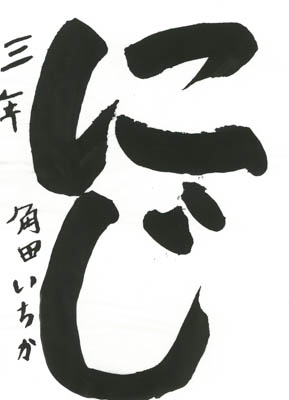 にじ
三年
角田いちか